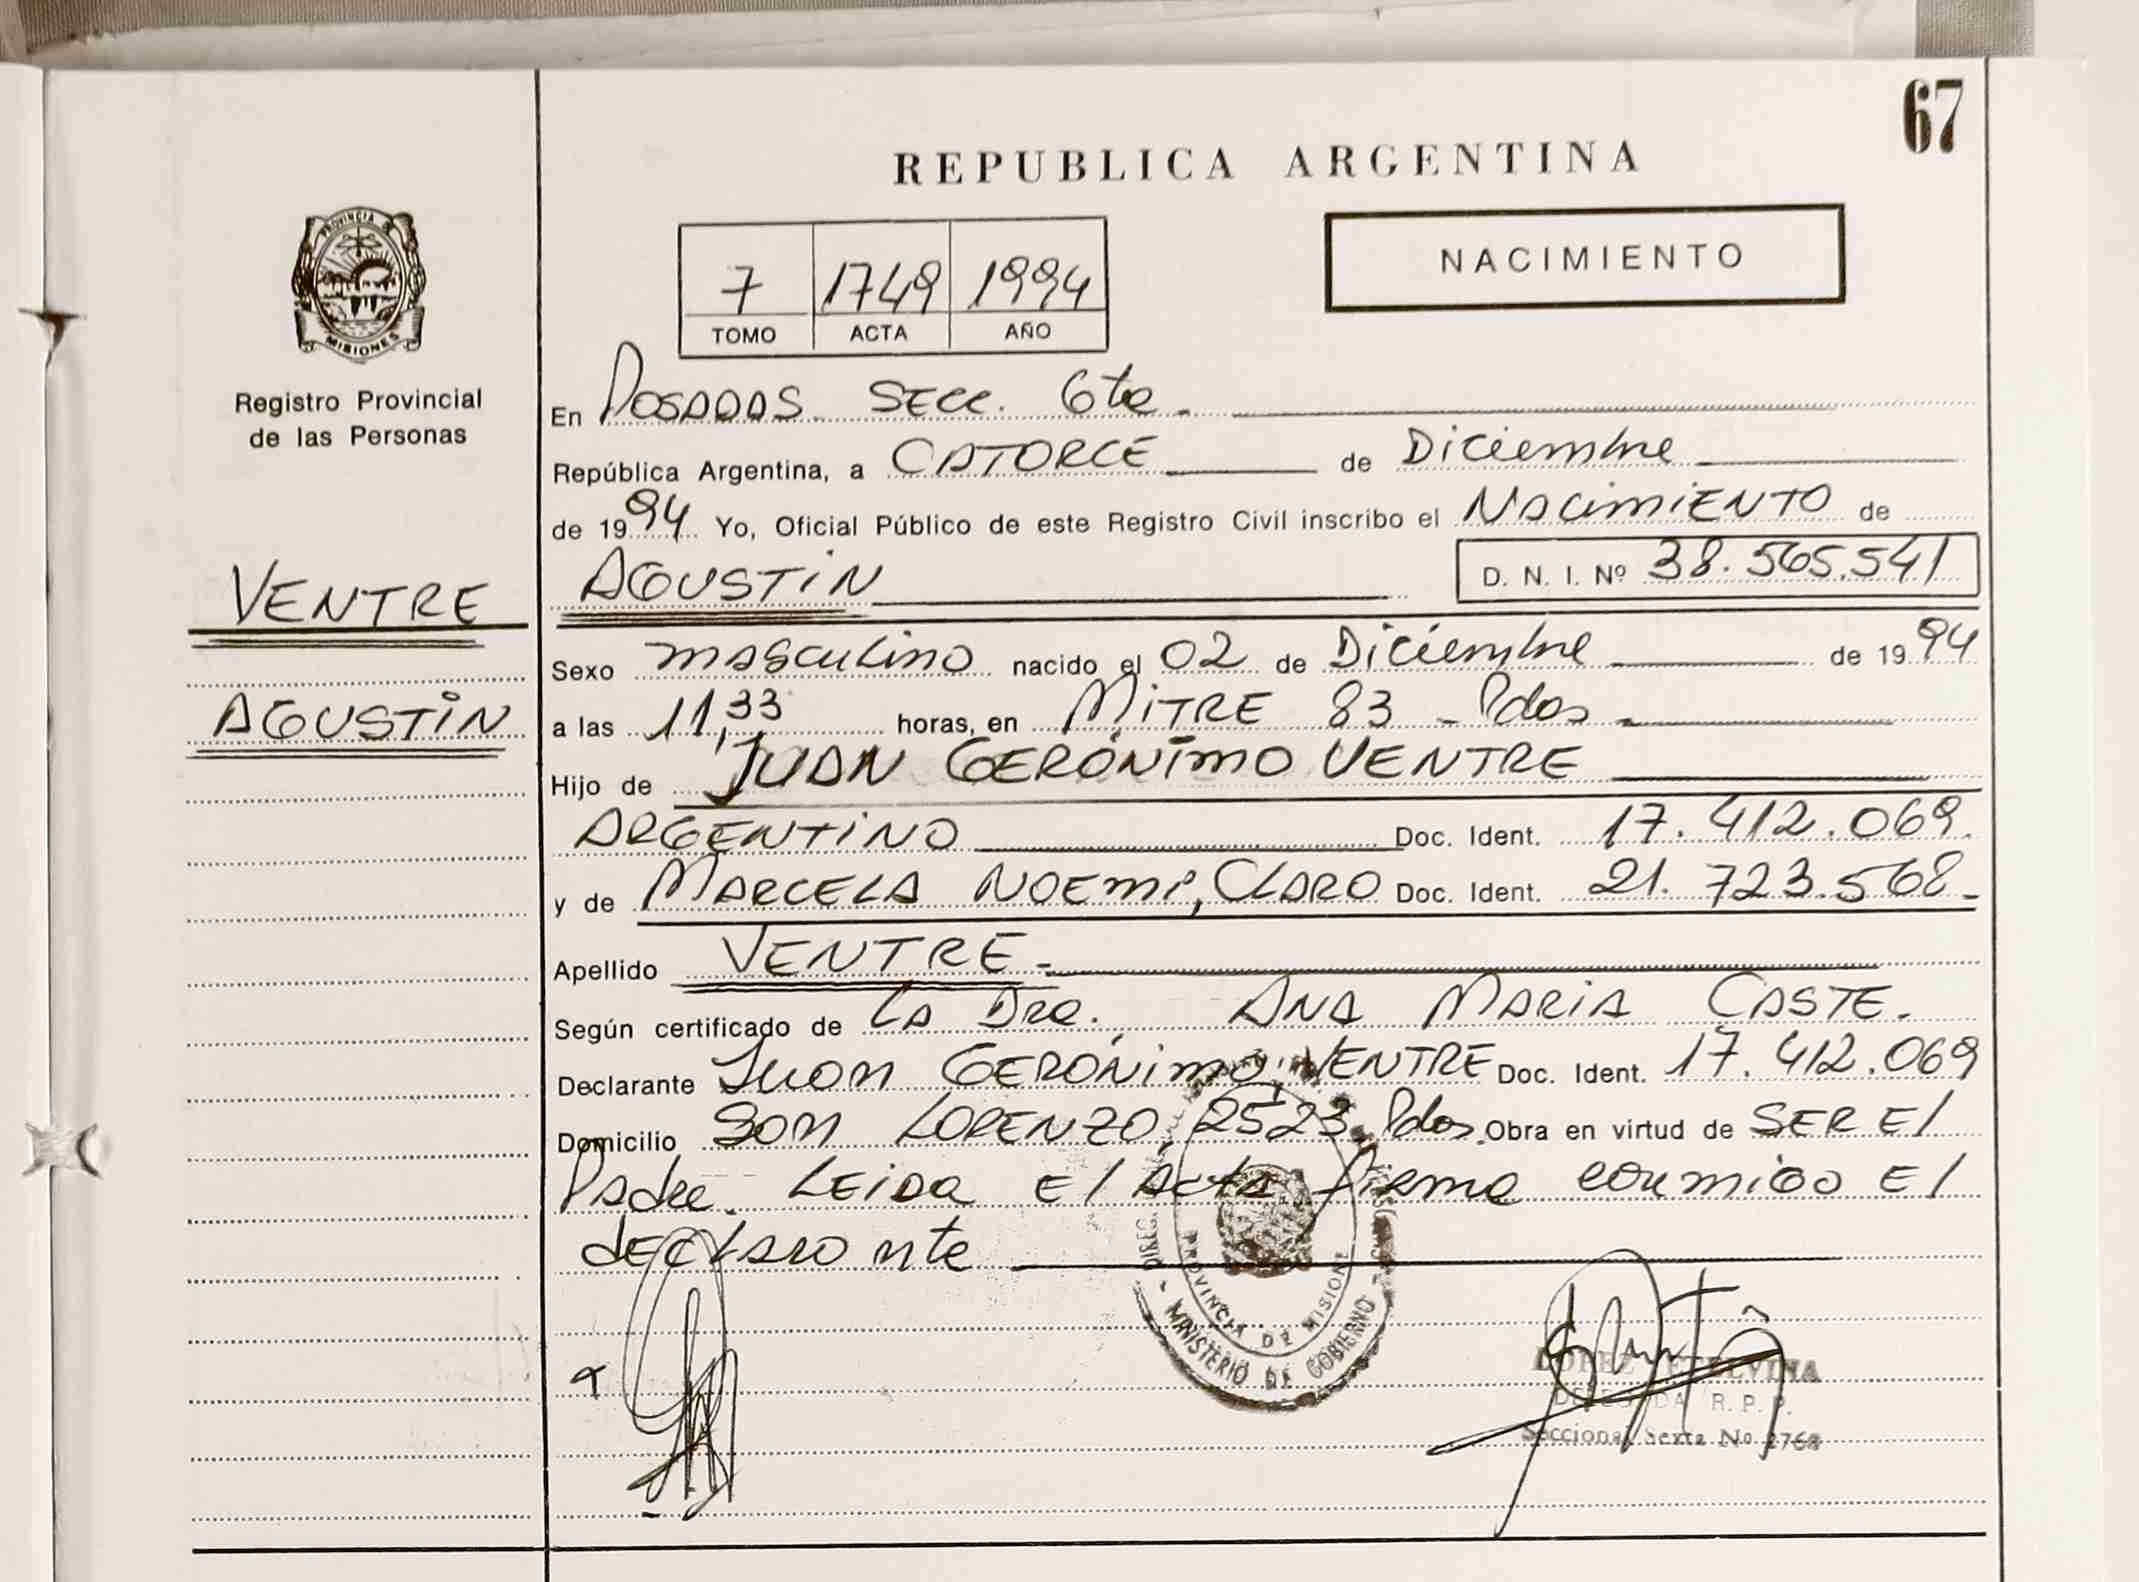 67
REPUBLICA ARGENTINA
PROVINCIA DE
MISIONES
Registro Provincial
de las Personas
7 1749 1994
TOMO ACTA AÑO
NACIMIENTO
En POSADAS SECC. 6ta.
República Argentina, a CATORCE de Diciembre
de 1994 Yo, Oficial Público de este Registro Civil inscribo el NACIMIENTO de
VENTRE
AGUSTIN
AGUSTIN D. N. I. Nº 38.565.541
Sexo masculino nacido el 02 de Diciembre de 1994
a las 11,33 horas, en MITRE 83 - Pdas -
Hijo de JUAN GERÓNIMO VENTRE
ARGENTINO Doc. Ident. 17.412.069.
y de MARCELA NOEMI, CLARO Doc. Ident. 21.723.568-
Apellido VENTRE-
Según certificado de LA Dra. ANA MARIA CASTE.
Declarante Juan GERÓNIMO VENTRE Doc. Ident. 17.412.069
Domicilio San LORENZO 2523 Pdas. Obra en virtud de SER El
Padre. LEIDA El Acta firma conmigo El
declarante
DIREC.
PROVINCIA DE MISIONE
- MINISTERIO DE GOBIERNO -
LOPEZ ETELVINA
DELEGADA R. P. P.
Seccional Sexta No 2768